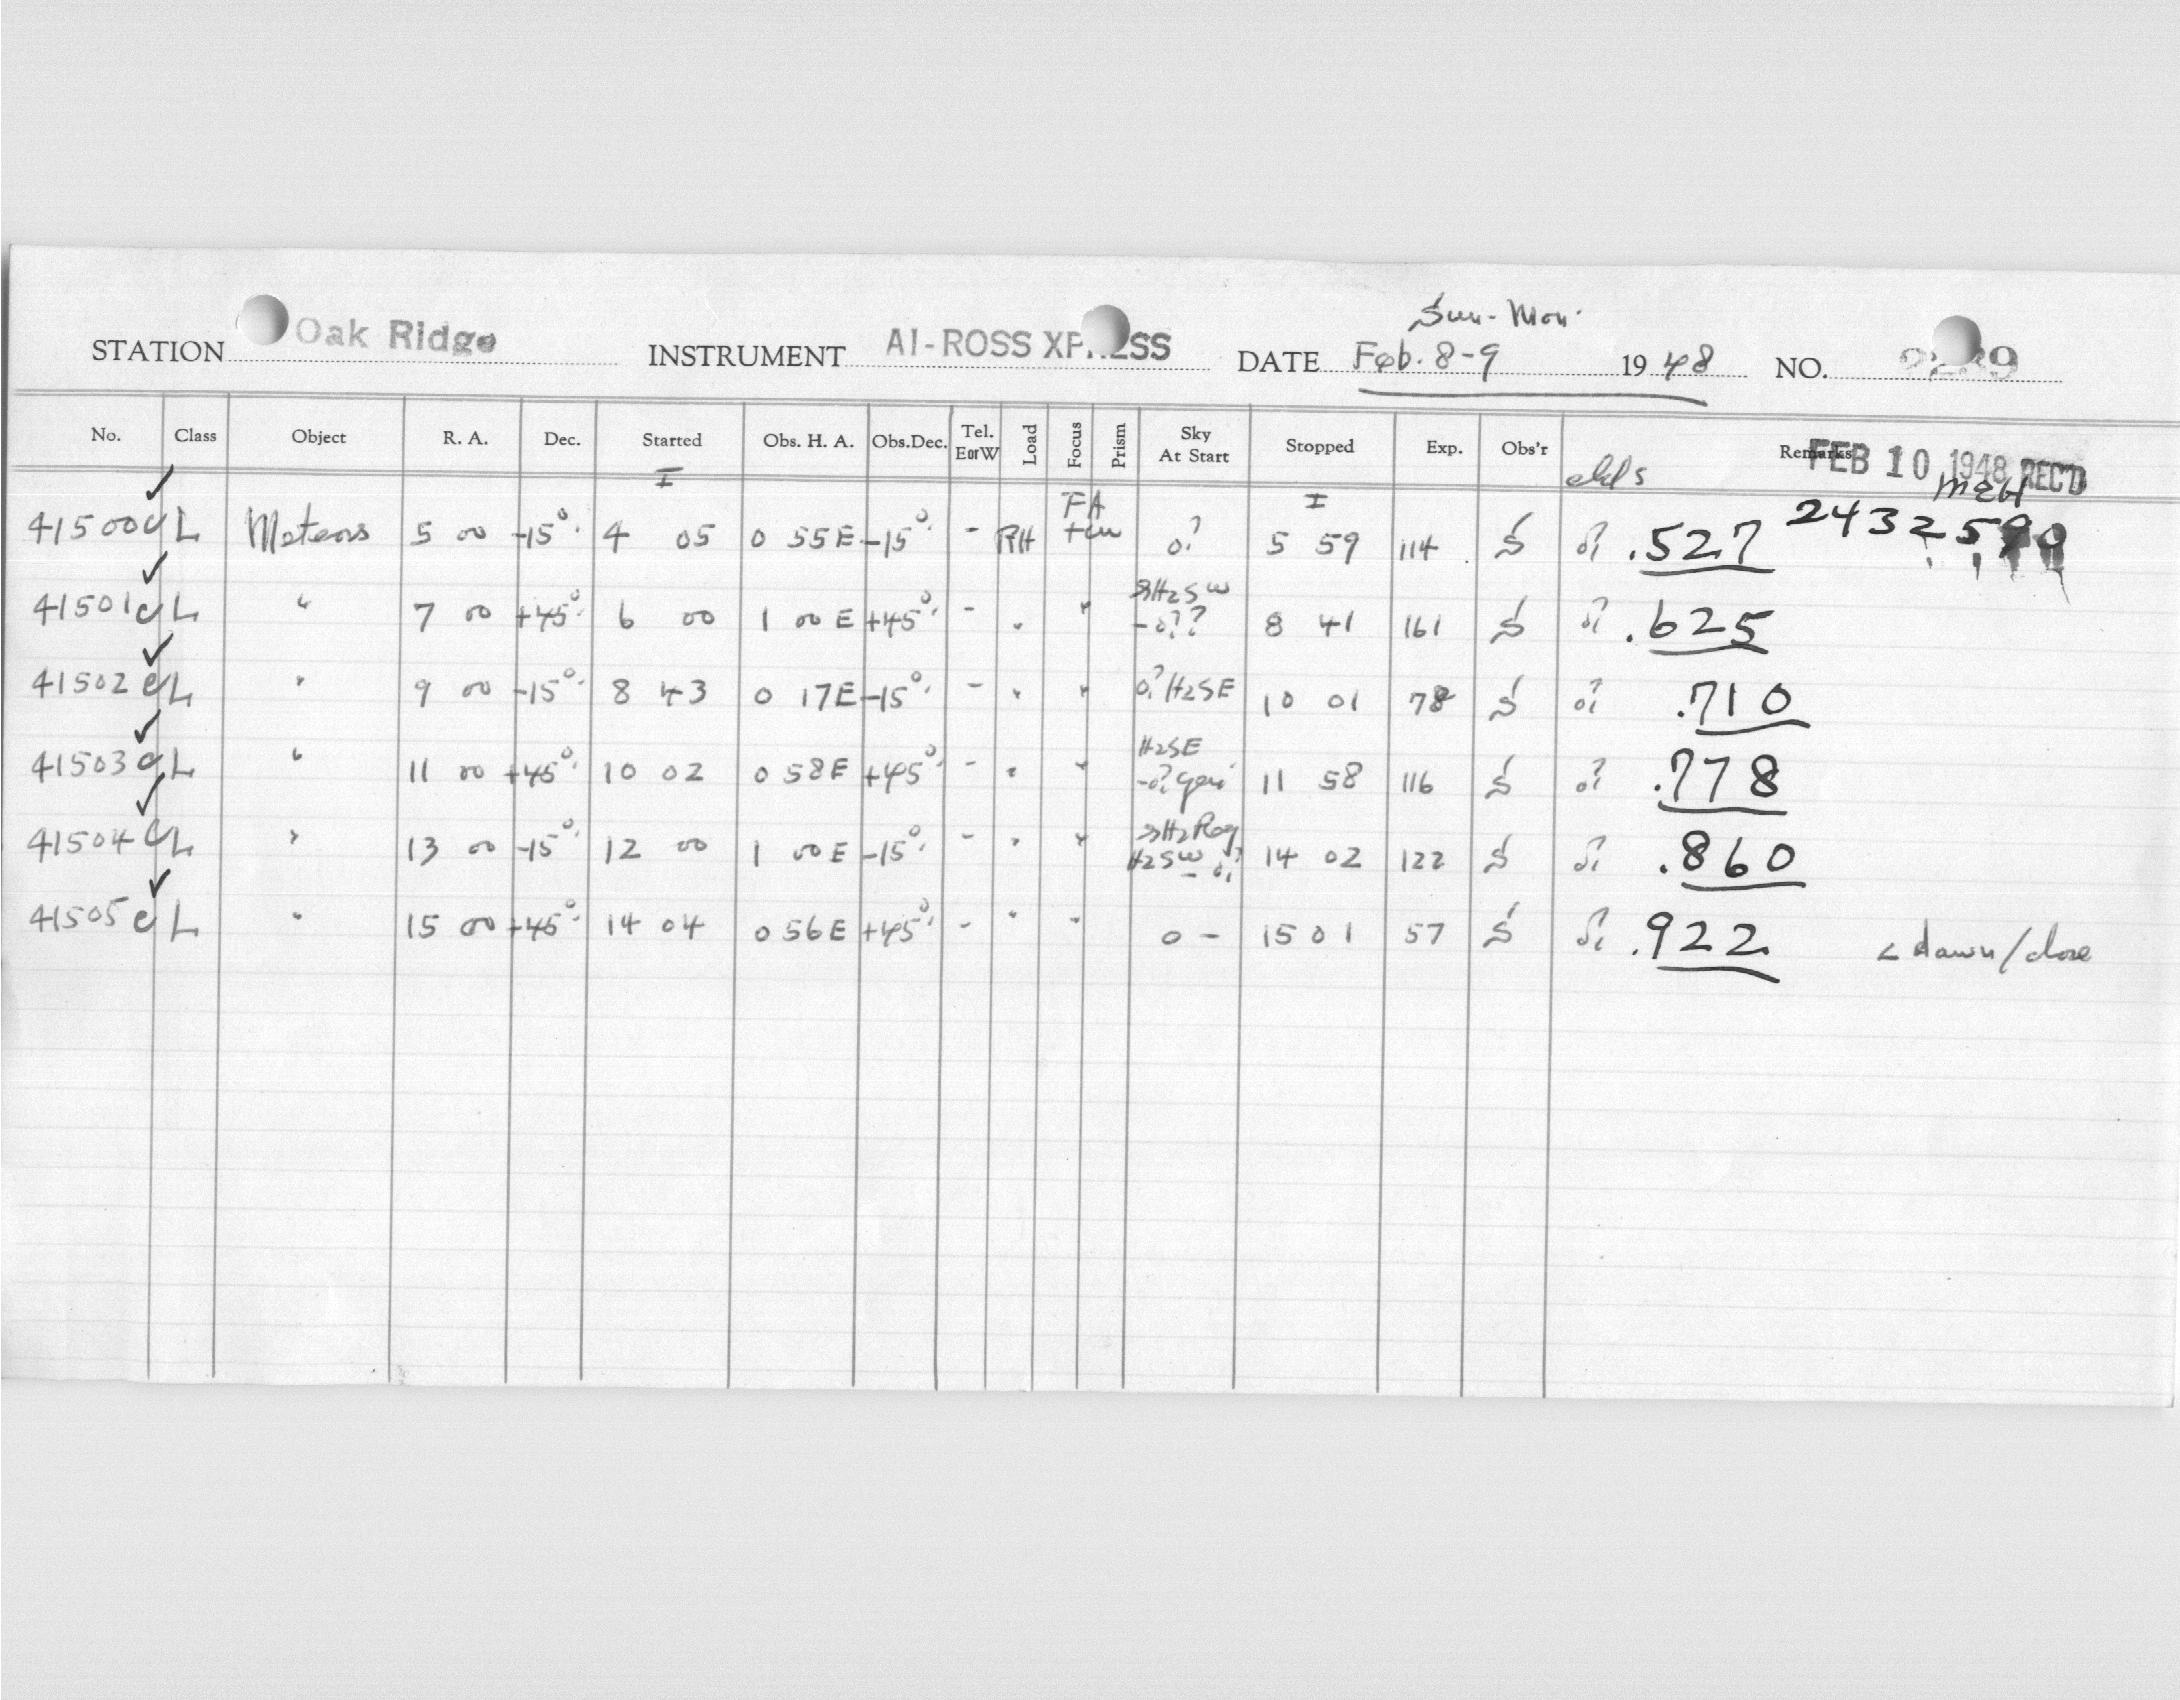 Sun-Mon.
STATION Oak Ridge INSTRUMENT AI-ROSS XPRESS DATE Feb. 8-9 1948 NO.
No. Class Object R. A. Dec. Started Obs. H. A. Obs.Dec. Tel. E or W Load Focus Prism Sky At Start Stopped Exp. Obs'r Remarks
FEB 10 1948 REC'D
I I
41500 L Meteors 5 00 -15° 4 05 0 55E -15° - RH FA 0? 5 59 114 S .527 2432590
41501 L " 7 00 +45° 6 00 1 00 E +45° - " " H2SW -0?? 8 41 161 S .625
41502 L " 9 00 -15° 8 43 0 17E -15° - " " 0? H2SE 10 01 78 S .710
41503 L " 11 00 +45° 10 02 0 58E +45° - " " H2SE 11 58 116 S .778
41504 L " 13 00 -15° 12 00 1 00 E -15° - " " H2SW 14 02 122 S .860
41505 L " 15 00 +45° 14 04 0 56E +45° - " " 0 - 15 01 57 S .922 < dawn/close